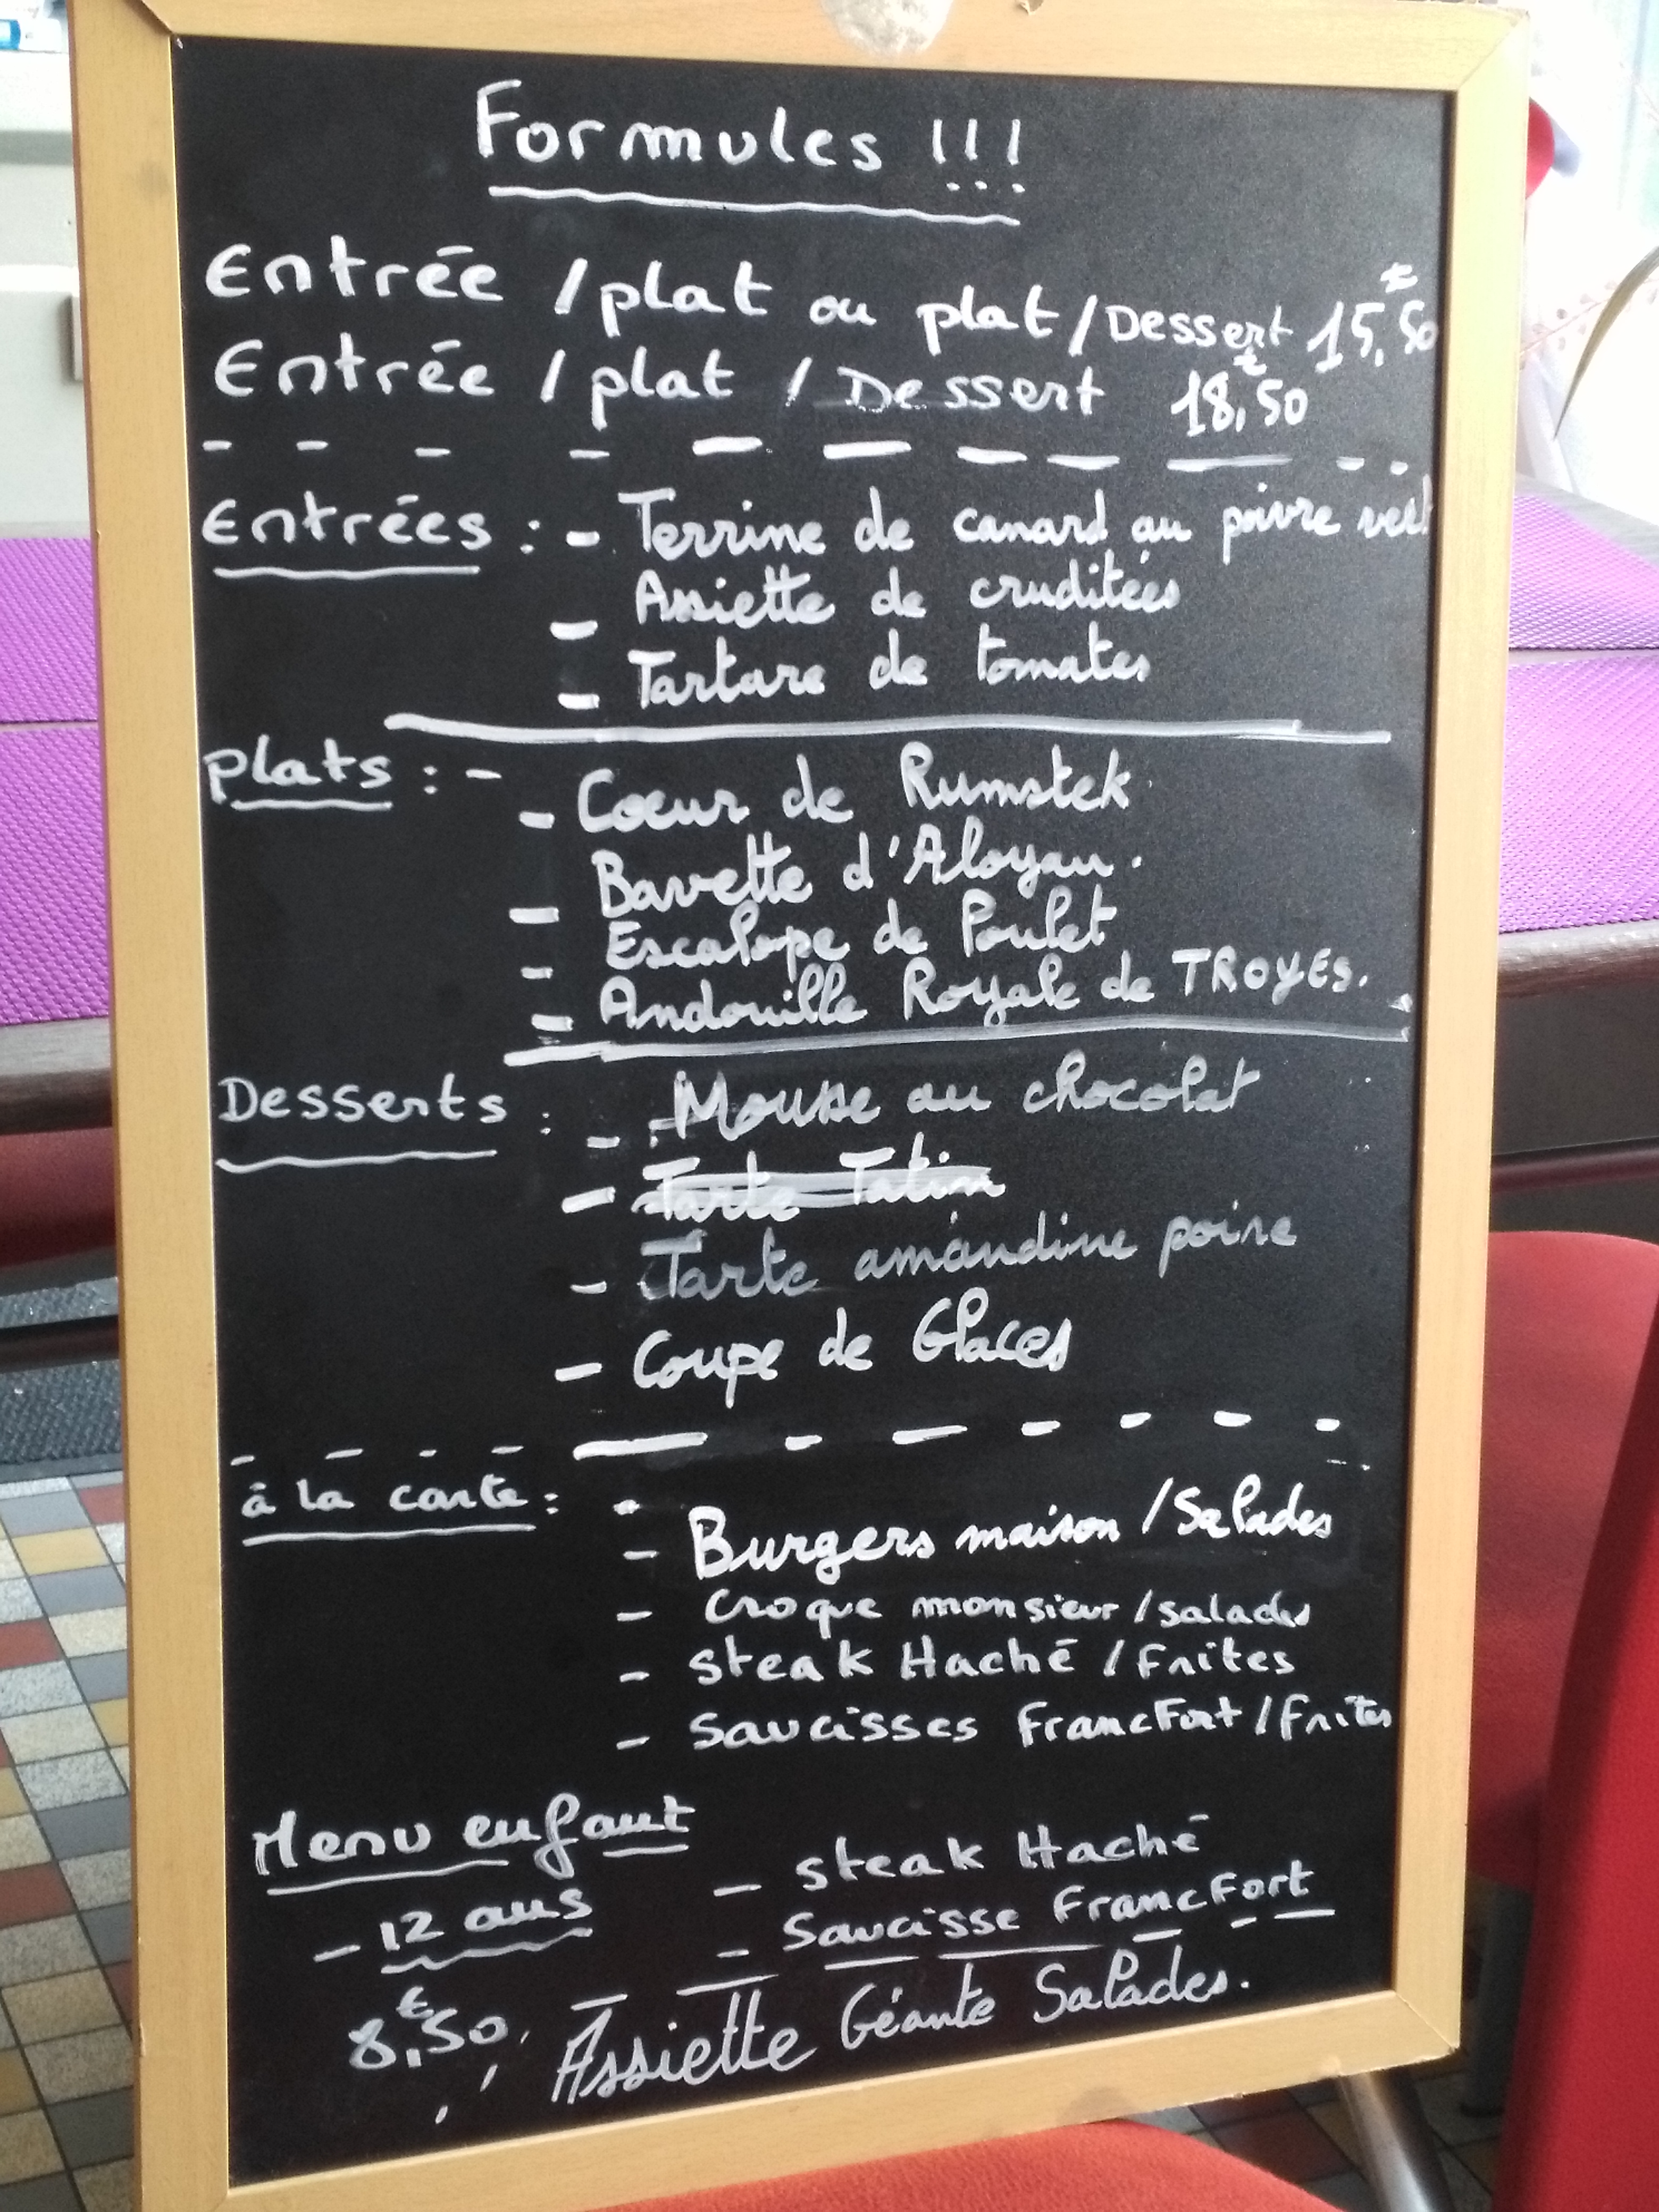 Formules !!!
Entrée / plat ou plat / Dessert 15,50€
Entrée / plat / Dessert 18,50€
Entrées : - Terrine de canard au poivre vert
- Assiette de cruditées
- Tartare de tomates
plats : -
- Coeur de Rumstek
- Bavette d'Aloyau.
- Escalope de Poulet
- Andouille Royale de TROYES.
Desserts : - Mousse au chocolat
- Tarte Tatin
- Tarte amandine poire
- Coupe de Glaces
à la carte : -
- Burgers maison / Salades
- Croque monsieur / salades
- Steak Haché / Frites
- Saucisses Francfort / Frites
Menu enfant
- 12 ans
8,50€
- Steak Haché
- Saucisse Francfort
Assiette Géante Salades.